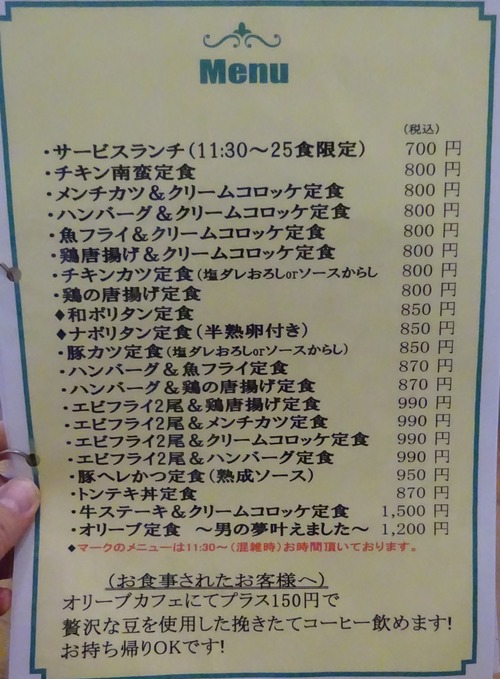 Menu
(税込)
・サービスランチ(11:30～25食限定) 700 円
・チキン南蛮定食 800 円
・メンチカツ&クリームコロッケ定食 800 円
・ハンバーグ&クリームコロッケ定食 800 円
・魚フライ&クリームコロッケ定食 800 円
・鶏唐揚げ&クリームコロッケ定食 800 円
・チキンカツ定食(塩ダレおろしorソースからし 800 円
・鶏の唐揚げ定食 800 円
◆和ポリタン定食 850 円
◆ナポリタン定食(半熟卵付き) 850 円
・豚カツ定食(塩ダレおろしorソースからし) 850 円
・ハンバーグ&魚フライ定食 870 円
・ハンバーグ&鶏の唐揚げ定食 870 円
・エビフライ2尾&鶏唐揚げ定食 990 円
・エビフライ2尾&メンチカツ定食 990 円
・エビフライ2尾&クリームコロッケ定食 990 円
・エビフライ2尾&ハンバーグ定食 990 円
・豚ヘレかつ定食(熟成ソース) 950 円
・トンテキ丼定食 870 円
・牛ステーキ&クリームコロッケ定食 1,500 円
・オリーブ定食 ～男の夢叶えました～ 1,200 円
◆マークのメニューは11:30～(混雑時)お時間頂いております。
(お食事されたお客様へ)
オリーブカフェにてプラス150円で
贅沢な豆を使用した挽きたてコーヒー飲めます!
お持ち帰りOKです!